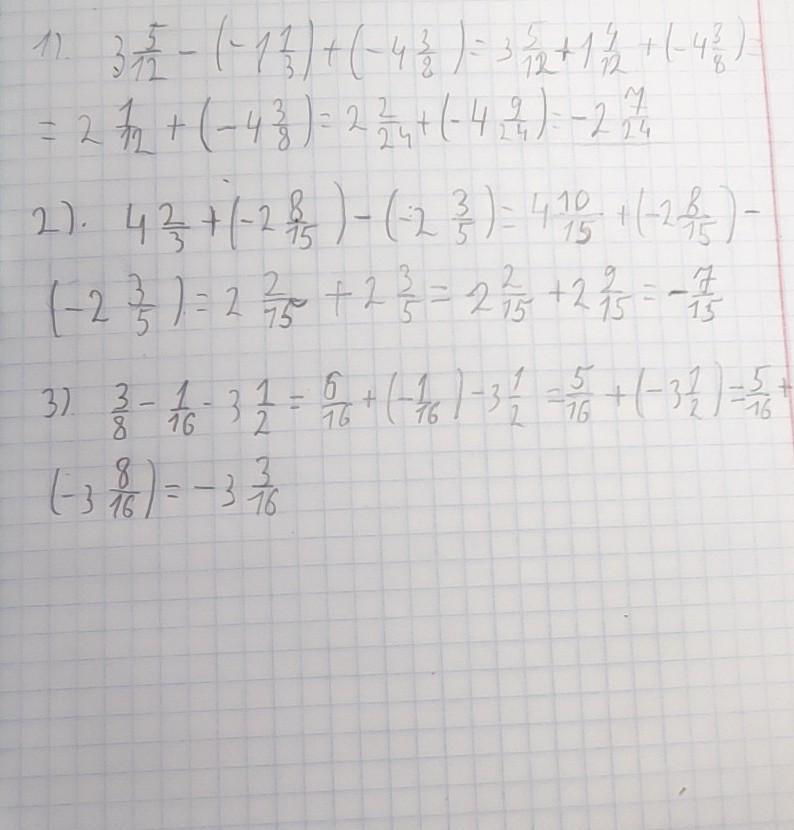 1). 3 5/12 - (-1 1/3) + (-4 3/8) = 3 5/12 + 1 4/12 + (-4 3/8) =
= 2 1/12 + (-4 3/8) = 2 2/24 + (-4 9/24) = -2 7/24
2). 4 2/3 + (-2 8/15) - (-2 3/5) = 4 10/15 + (-2 8/15) -
(-2 3/5) = 2 2/15 + 2 3/5 = 2 2/15 + 2 9/15 = -7/15
3) 3/8 - 1/16 - 3 1/2 = 6/16 + (-1/16) - 3 1/2 = 5/16 + (-3 1/2) = 5/16 +
(-3 8/16) = -3 3/16